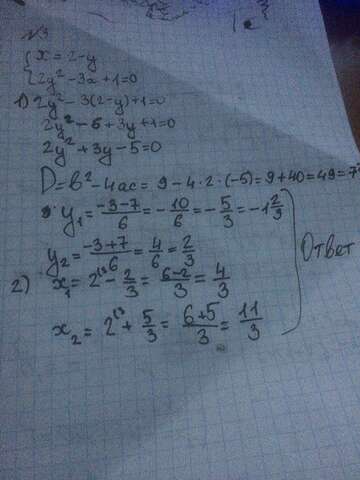 №3
{ x = 2-y
{ 2y² - 3x + 1 = 0
1) 2y² - 3(2-y) + 1 = 0
2y² - 6 + 3y + 1 = 0
2y² + 3y - 5 = 0
D = b² - 4ac = 9 - 4 · 2 · (-5) = 9 + 40 = 49 = 7²
y₁ = -3-7/6 = -10/6 = -5/3 = -1 2/3
y₂ = -3+7/6 = 4/6 = 2/3
2) x₁ = 2⁽³ - 2/3 = 6-2/3 = 4/3
x₂ = 2⁽³ + 5/3 = 6+5/3 = 11/3
Ответ